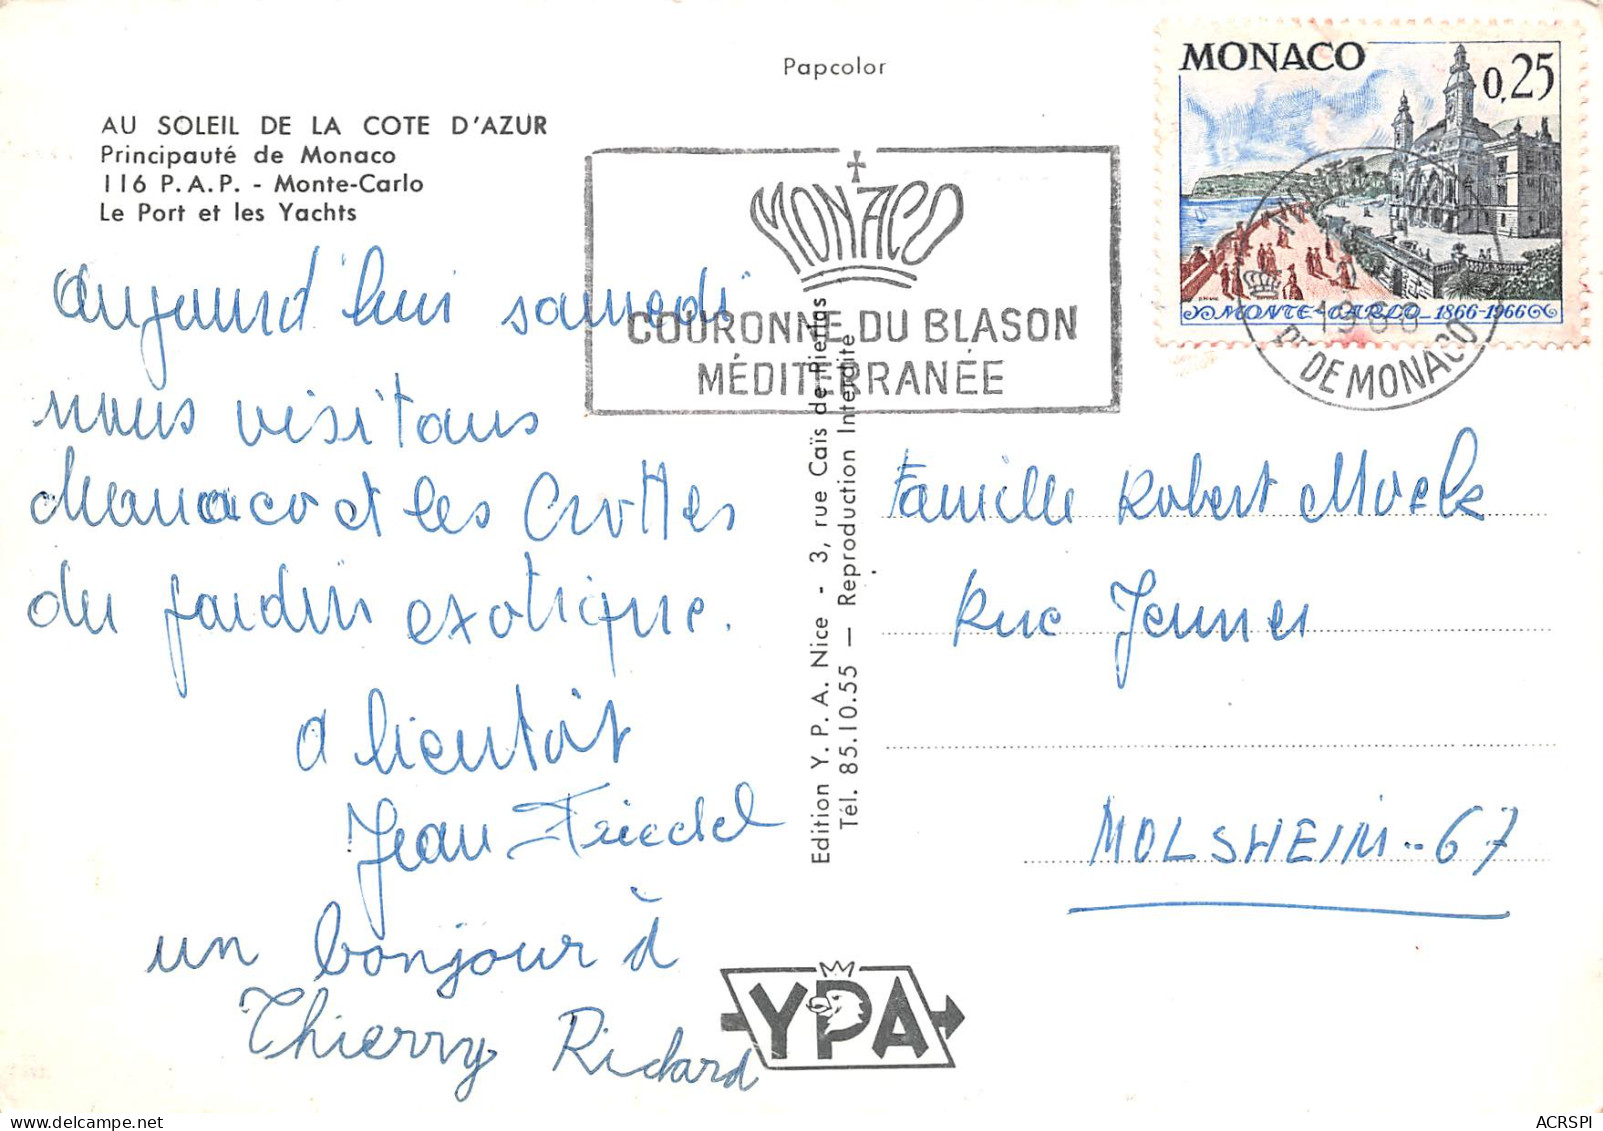 Papcolor
AU SOLEIL DE LA COTE D'AZUR
Principauté de Monaco
116 P.A.P. - Monte-Carlo
Le Port et les Yachts
MONACO
COURONNE DU BLASON
MÉDITERRANÉE
MONACO
0,25
MONTE-CARLO 1866-1966
PTÉ DE MONACO
aujourd'hui samedi
nous visitons
Monaco et les Grottes
du jardin exotique.
à bientôt
Jean Friedel
un bonjour à
Thierry Richard
Edition Y. P. A. Nice - 3, rue Caïs de Pierlas
Tél. 85.10.55 — Reproduction Interdite
Famille Robert Moelk
Rue Jenner
MOLSHEIM-67
YPA
ACRSPI